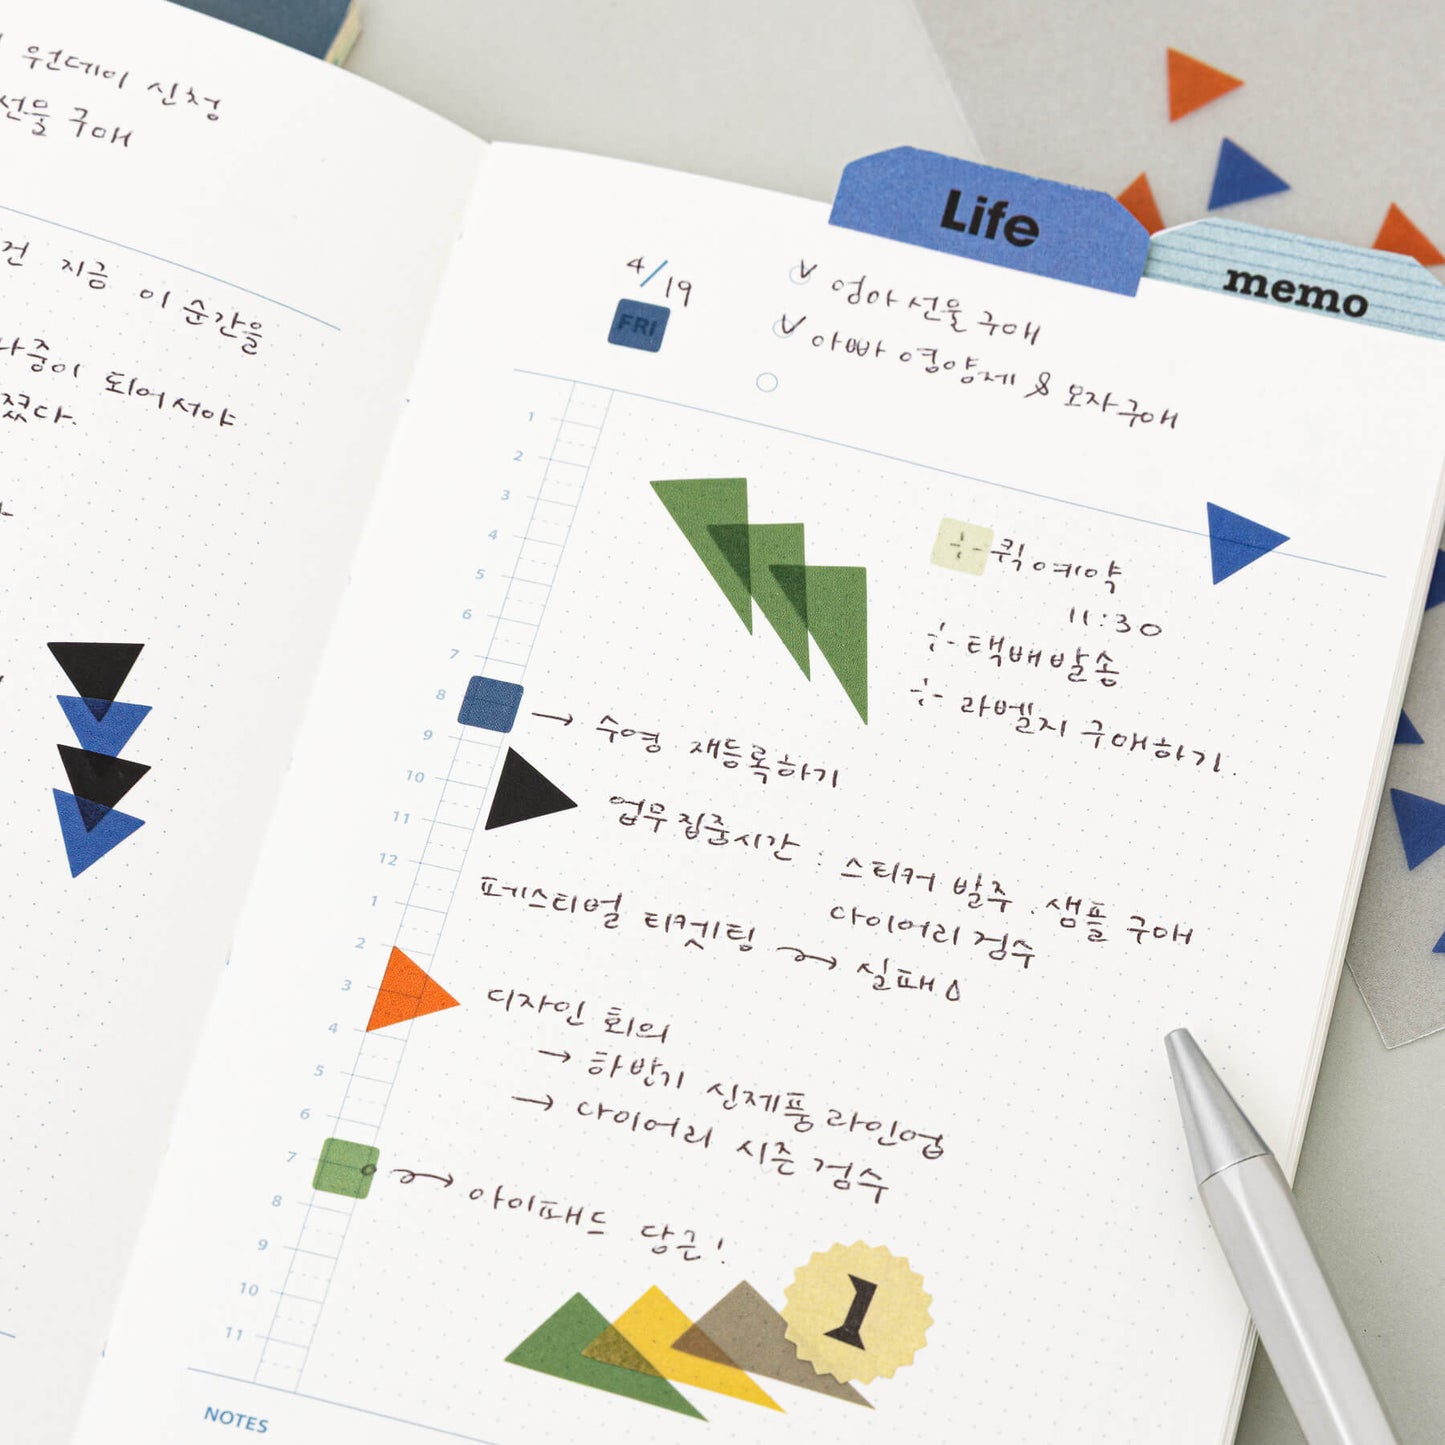 원데이 신청
선물 구매
건 지금 이 순간을
중이 되어서야
졌다.
Life
memo
4/19
FRI
엄마 선물 구매
아빠 영양제 & 모자구매
1
2
3
4
5
6
7
8
9
10
11
12
1
2
3
4
5
6
7
8
9
10
11
퀵 예약
11:30
택배발송
라벨지 구매하기.
→ 수영 재등록하기
업무집중시간 : 스티커 발주. 샘플 구매
다이어리 검수
페스티벌 티켓팅 → 실패
디자인 회의
→ 하반기 신제품 라인업
→ 다이어리 시즌 검수
아이패드 당근!
1
NOTES